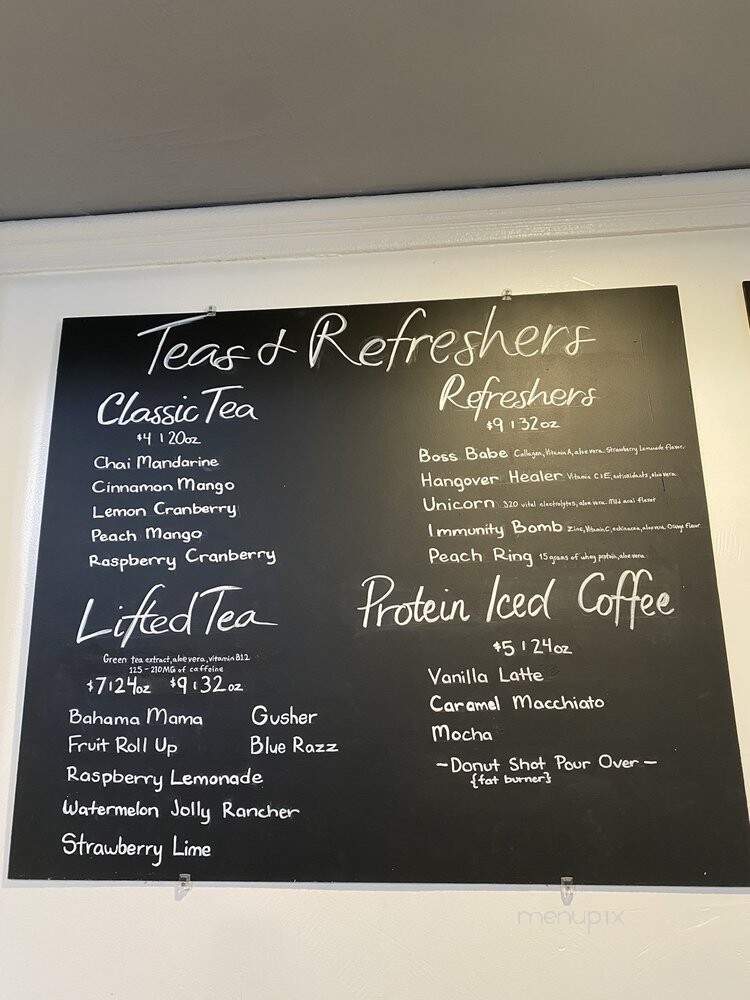 Teas & Refreshers
Classic Tea
$4 | 20oz
Chai Mandarine
Cinnamon Mango
Lemon Cranberry
Peach Mango
Raspberry Cranberry
Lifted Tea
Green tea extract, aloe vera, vitamin B12
125-210MG of caffeine
$7 | 24oz $9 | 32oz
Bahama Mama Gusher
Fruit Roll Up Blue Razz
Raspberry Lemonade
Watermelon Jolly Rancher
Strawberry Lime
Refreshers
$9 | 32oz
Boss Babe Collagen, Vitamin A, aloe vera. Strawberry Lemonade flavor.
Hangover Healer Vitamin C|E, antioxidants, aloe vera
Unicorn 320 vital electrolytes, aloe vera. Mild acai flavor
Immunity Bomb Zinc, Vitamin C, echinacea, aloe vera Orange flavor
Peach Ring 15 grams of whey protein, aloe vera
Protein Iced Coffee
$5 | 24oz
Vanilla Latte
Caramel Macchiato
Mocha
-Donut Shot Pour Over-
{fat burner}
menupix